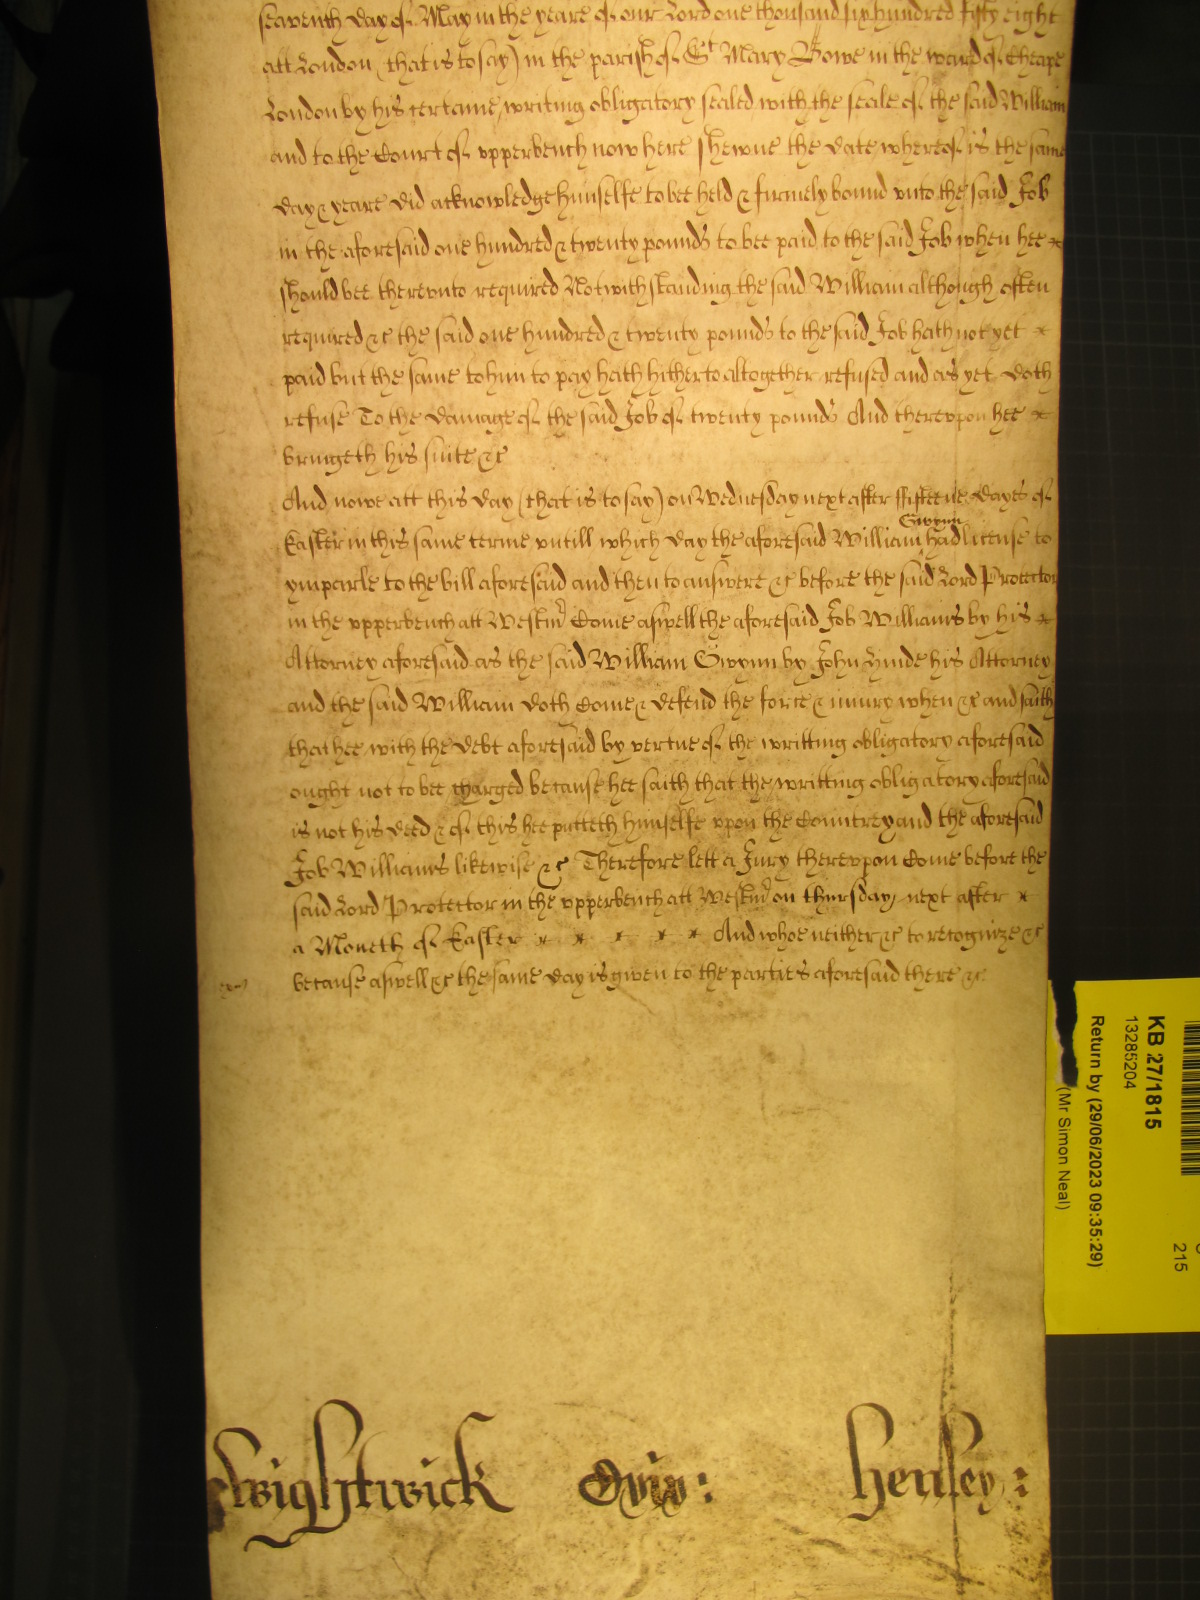 seaventh day of May in the yeare of our Lord one thousand six hundred fifty eight
att London (that is to say) in the parish of St Mary Bowe in the ward of Cheape
London by his certaine writing obligatory sealed with the seale of the said William
and to the Court of vpperbench now here shewne the date whereof is the same
day & yeare did acknowledge himselfe to bee held & firmely bound vnto the said Job
in the aforesaid one hundred & twenty pounds to bee paid to the said Job when hee
should bee therevnto required Notwithstanding the said William although often
required &c the said one hundred & twenty pounds to the said Job hath not yet
paid but the same to him to pay hath hitherto altogether refused and as yet doth
refuse To the damage of the said Job of twenty pounds And therevpon hee
bringeth his suite &c
And nowe att this day (that is to say) on Wednesday next after ffifteene dayes of
Easter in this same terme vntill which day the aforesaid William Gwynn had license to
ymparle to the bill aforesaid and then to answere &c before the said Lord Protector
in the vpperbench att Westmr Come aswell the aforesaid Job Williams by his
Attorney aforesaid as the said William Gwynn by John Hinde his Attorney
and the said William doth Come & defend the force & iniury when &c and saith
that hee with the debt aforesaid by vertue of the writting obligatory aforesaid
ought not to bee charged because hee saith that the writting obligatory aforesaid
is not his deed & of this hee putteth himselfe vpon the Countrey and the aforesaid
Job Williams likewise &c Therefore lett a Jury therevpon Come before the
said Lord Protector in the vpperbench att Westmr on thursday next after
a Moneth of Easter And whoe neither &c to recognize &c
because aswell &c the same day is given to the parties aforesaid there &c
Wightwick Oxõn: Henley:
KB 27/1815
13285204
Return by (29/06/2023 09:35:29)
(Mr Simon Neal)
215